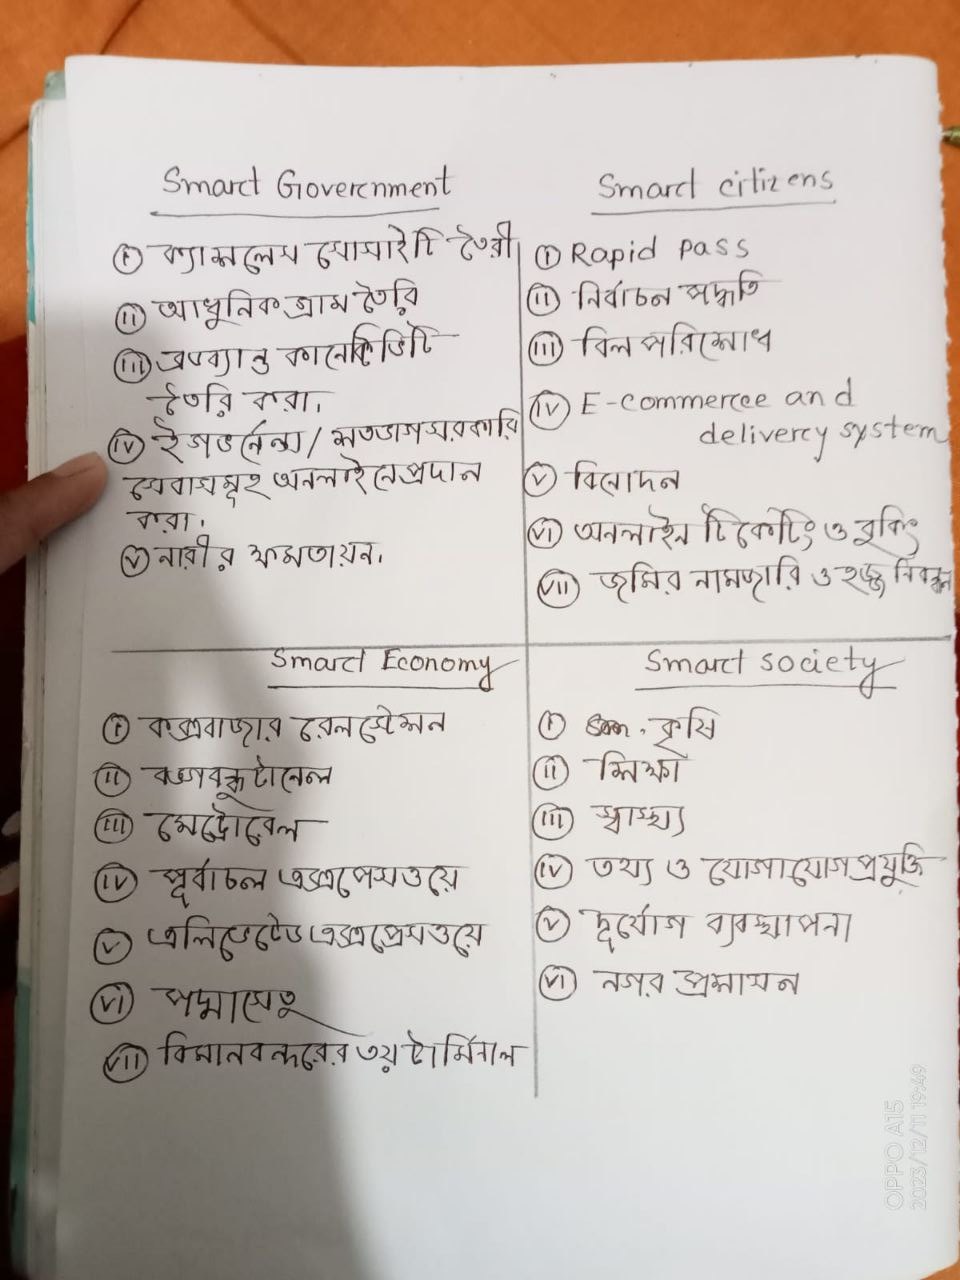 Smart Government
i ক্যাশলেস সোসাইটি তৈরী
ii আধুনিক গ্রাম তৈরি
iii ব্রডব্যান্ড কানেক্টিভিটি
তৈরি করা।
iv ইগভর্নেন্স / শতভাগ সরকারি
সেবাসমূহ অনলাইনে প্রদান
করা।
v নারীর ক্ষমতায়ন।
Smart citizens
i Rapid pass
ii নির্বাচন পদ্ধতি
iii বিল পরিশোধ
iv E-commerce and
delivery system
v বিনোদন
vi অনলাইন টিকেটিং ও বুকিং
vii জমির নামজারি ও হজ্জ নিবন্ধন
Smart Economy
i কক্সবাজার রেলস্টেশন
ii বঙ্গবন্ধু টানেল
iii মেট্রোরেল
iv পূর্বাচল এক্সপ্রেসওয়ে
v এলিভেটেড এক্সপ্রেসওয়ে
vi পদ্মাসেতু
vii বিমানবন্দরের ৩য় টার্মিনাল
Smart society
i কৃষি
ii শিক্ষা
iii স্বাস্থ্য
iv তথ্য ও যোগাযোগ প্রযুক্তি
v দূর্যোগ ব্যবস্থাপনা
vi নগর প্রশাসন
OPPO A15
2023/12/11 19:49